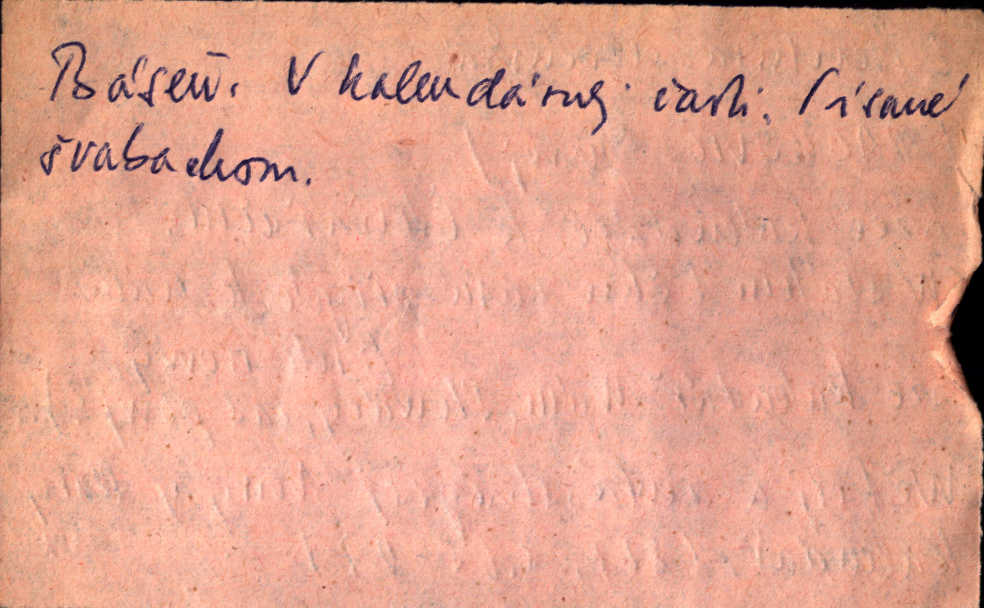 Báseň. V kalendárnej časti. Písané
švabachom.